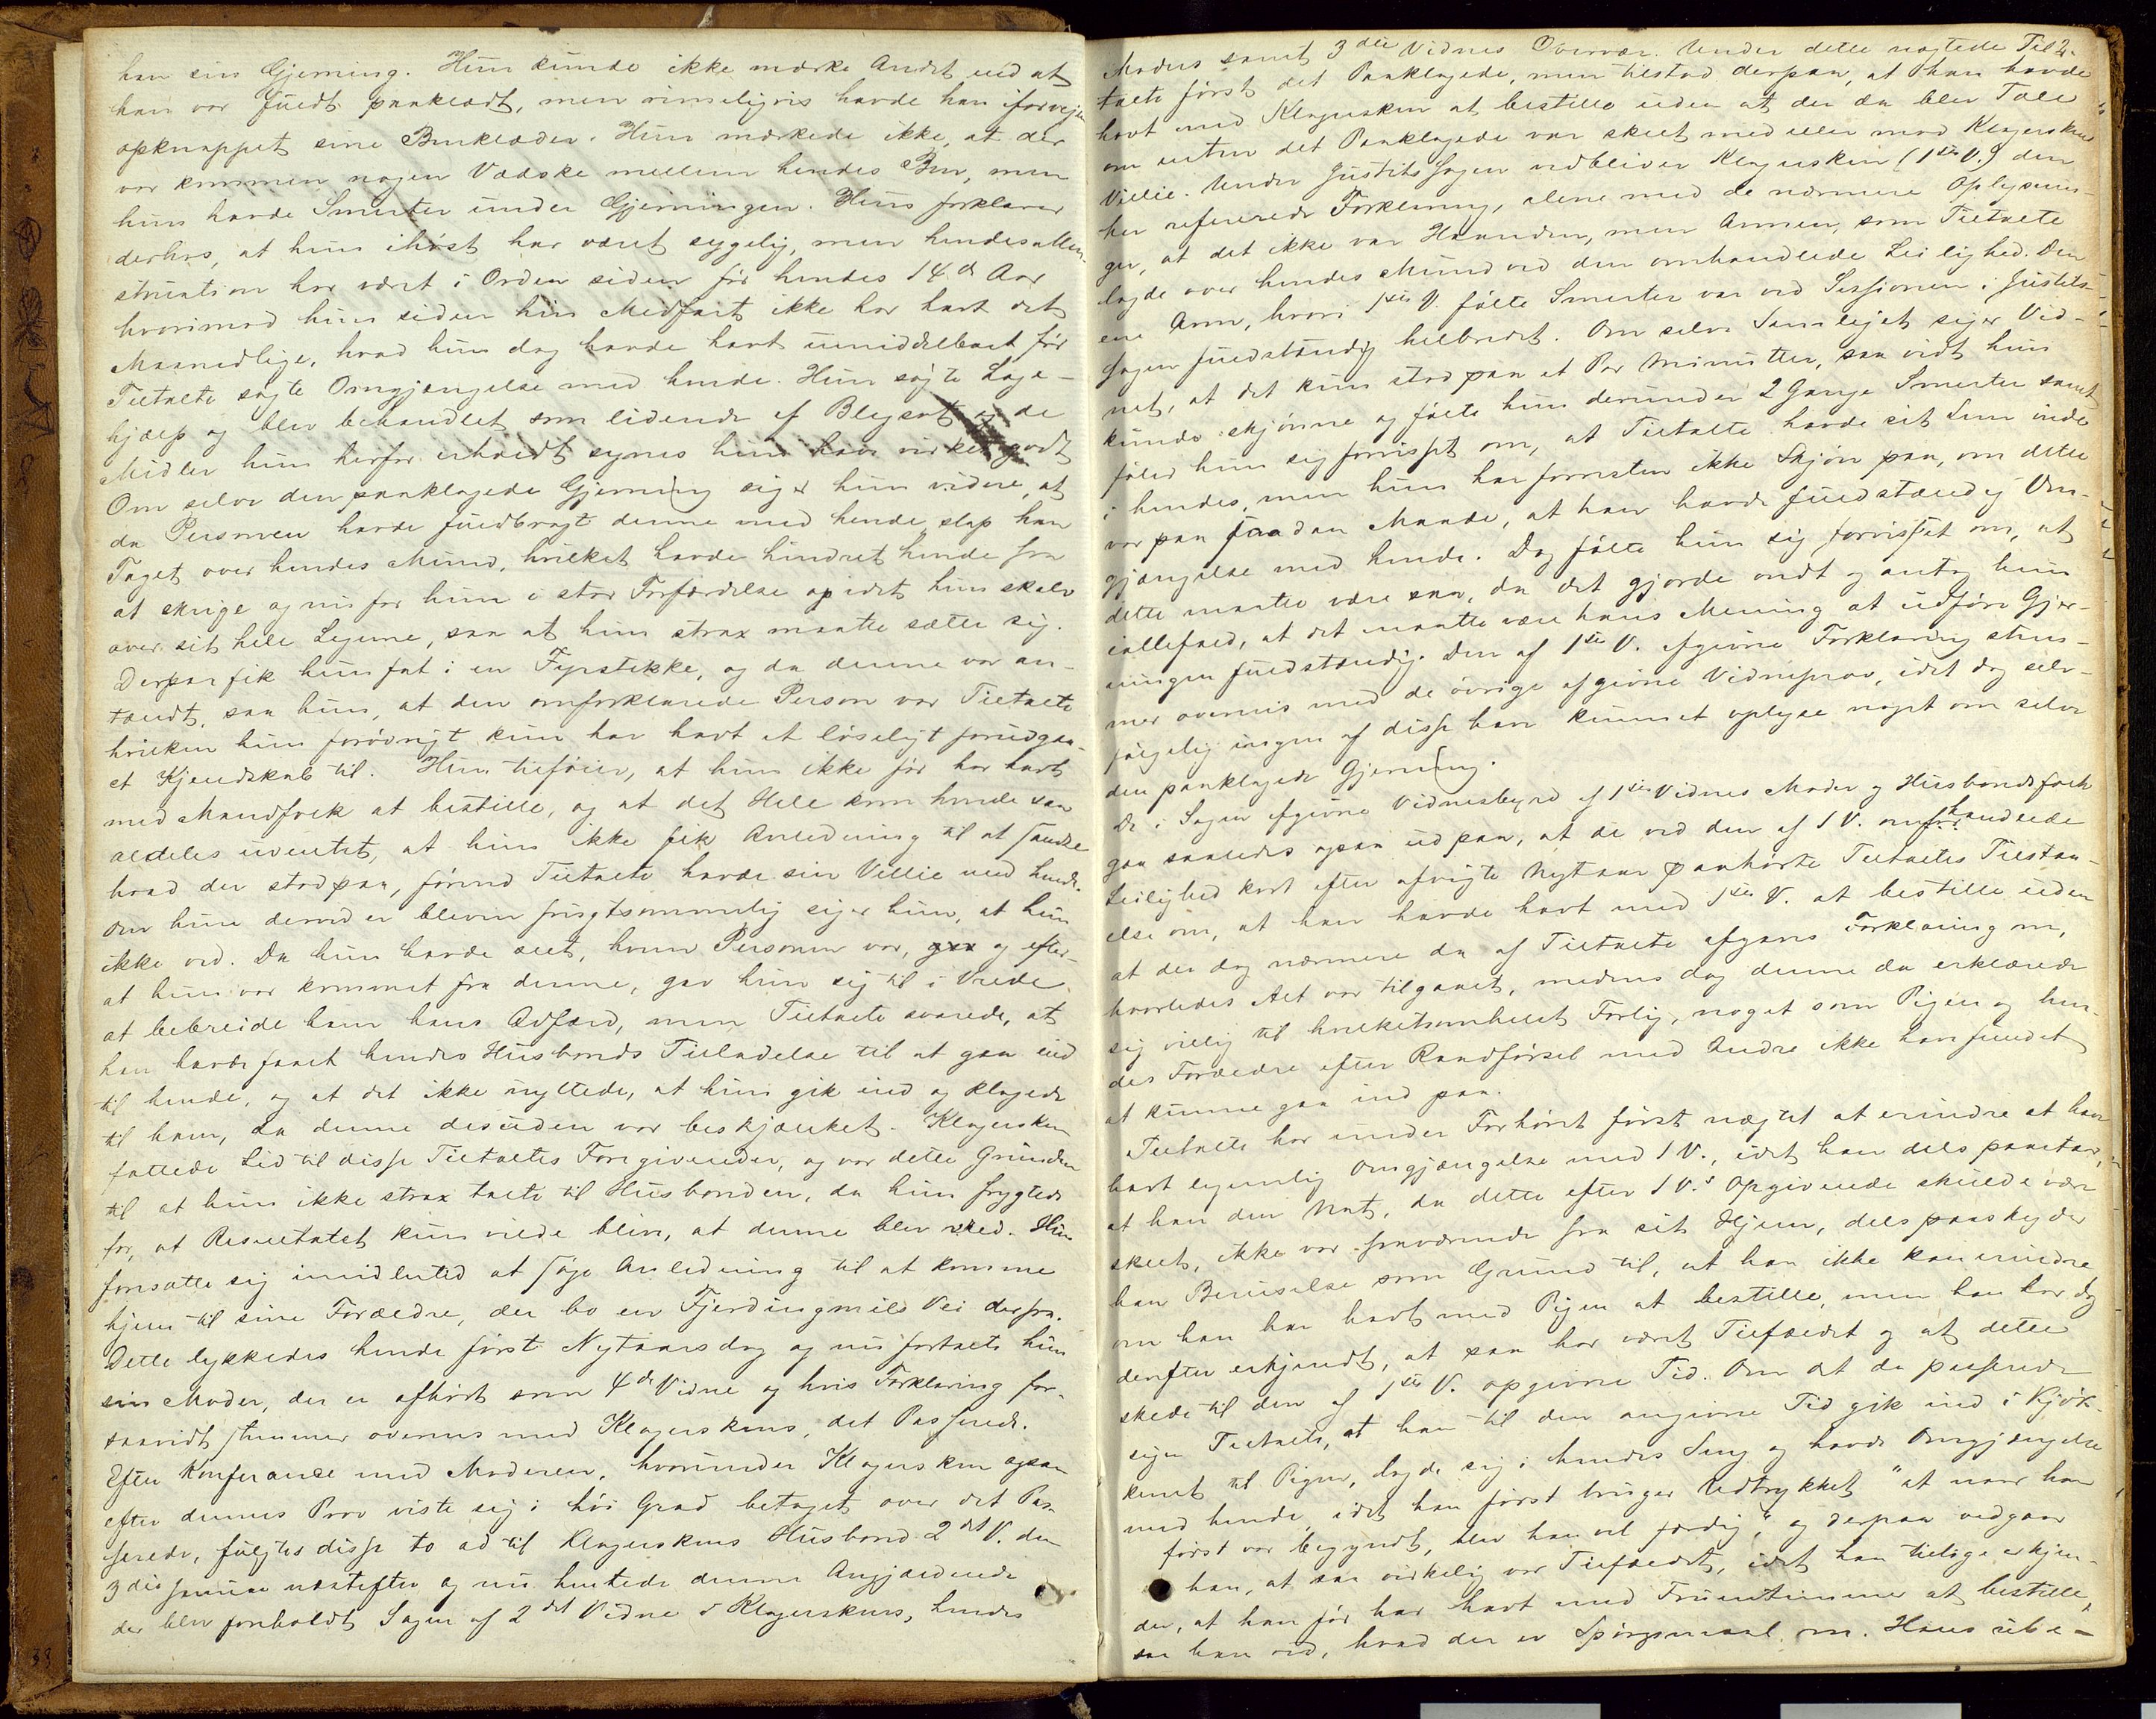 han sin Gjerning. Hun kunde ikke mærke Andet end at
han var fuldt paaklædt, men rimeligvis havde han iforvejen
opknappet sine Benklæder. Hun mærkede ikke, at der
var kommen nogen Vædske mellem hendes Ben, men
hun havde Smerter under Gjerningen. Hun forklarer
derhos, at hun ihøst har været sygelig, men hendes allen
struation har været i Orden siden før hendes 14de Aar
hvorimod hun siden hin Medfart ikke har havt det
Maanedlige, hvad hun dog havde havt umiddelbart før
Tiltalte søgte Omgjængelse med hende. Hun søgte Læge-
hjælp og blev behandlet som lidende af Blegsot og de
Midler hun herfor erholdt synes hun have virket godt
Om selve den paaklagede Gjerning siger hun videre, at
da Personen havde fuldbragt denne med hende slap han
Taget over hendes Mund, hvilket havde hindret hende fra
at skrige og nu for hun i stor Forfærdelse op idet hun skalv
over sit hele Legeme, saa at hun strax maatte sætte sig.
Derpaa fik hun fat i en Fyrstikke, og da denne var an-
tændt, saa hun, at den omforklarede Person var Tiltalte
hvilken hun forøvrigt kun har havt et løseligt forudgaa-
et Kjendskab til. Hun tilføier, at hun ikke før har havt
med Mandfolk at bestille, og at det Hele kom hende saa
aldeles uventet, at hun ikke fik Anledning til at sandse
hvad der stod paa, førend Tiltalte havde sin Villie med hende.
Om hun derved er bleven frugtsommelig siger hun, at hun
ikke ved. Da hun havde seet, hvem Personen var, og efter-
at hun var kommet fra denne, gav hun sig til i Vrede
at bebreide ham hans Adfærd, men Tiltalte svarede, at
han havde faaet hendes Husbonds Tilladelse til at gaa ind
til hende, og at det ikke nyttede, at hun gik ind og klagede
til ham, da denne desuden var beskjænket. Klagersken
fattede Lid til disse Tiltaltes Foregivender, og var dette Grunden
til at hun ikke strax talte til Husbonden, da hun frygtede
for, at Resultatet kun vilde blive, at denne blev vred. Hun
foresatte sig imidlertid at søge Anledning til at komme
hjem til sine Forældre, der bo en Fjerdingmils Vei derfra.
Dette lykkedes hende først Nytaarsdag og nu fortalte hun
sin Moder, der er afhørt som 4de Vidne og hvis Forklaring for-
saavidt stemmer overens med Klagerskens, det Passerede.
Efter Konferanse med Moderen, hvorunder Klagersken ogsaa
efter dennes Prov viste sig i høi Grad betaget over det Pas-
serede, fulgtes disse to ad til Klagerskens Husbond 2det V. den
3die Januar næstefter og nu hentede denne Angjældende
der blev foreholdt Sagen af 2det Vidne i Klagerskens, hendes
Moders samt 3die Vidnes Overvær. Under dette nægtede Til-
talte først det Paaklagede, men tilstod derpaa, at han havde
havt med Klagersken at bestille uden at der da blev Tale
om enten det Paaklagede var skeet med eller mod Klagerskens
Villie. Under Justitssagen vedbliver Klagersken (1ste V.) den
her refererede Forklaring, alene med de nærmere Oplysnin-
ger, at det ikke var Haanden, men Armen, som Tiltalte
lagde over hendes Mund ved den omhandlede Leilighed. Den
ene Arm, hvori 1ste V. følte Smerter var ved Sessionen i Justits-
sagen fuldstændig helbredet. Om selve Samlejet siger Vid-
net, at det kun stod paa et Par Minutter, saa vidt hun
kunde skjønne og følte hun derunder 2 Gange Smerter samt
føler hun sig forvisset om, at Tiltalte havde sit Lem inde
i hendes, men hun har forresten ikke Skjøn paa, om dette
var paa saadan Maade, at han havde fuldstændig Om-
gjængelse med hende. Dog følte hun sig forvisset om, at
dette maatte være saa, da det gjorde ondt og antog hun
iallefald, at det maatte være hans Mening at udføre Gjer-
ningen fuldstændig. Den af 1ste V. afgivne Forklaring stem-
mer overens med de øvrige afgivne Vidneprov, idet dog selv-
følgelig ingen af disse have kunnet oplyse noget om selve
den paaklagede Gjerning.
De i Sagen afgivne Vidnesbyrd af 1ste Vidnes Moder og Husbondsfolk
gaa saaledes ogsaa ud paa, at de ved den af 1 V. omhandlede
Leilighed kort efter afvigte Nytaar paahørte Tiltaltes Tilstaa-
else om, at han havde havt med 1ste V. at bestille uden
at der dog nærmere da af Tiltalte afgaves Forklaring om,
hvorledes Alt var tilgaaet, medens dog denne da erklærede
sig villig til hvilketsomhelst Forlig, noget som Pigen og hen-
des Forældre efter Raadførsel med Andre ikke have fundet
at kunne gaa ind paa.
Tiltalte har under Forhøret først nægtet at erindre at have
havt legemlig Omgjængelse med 1 V., idet han dels paastaar,
at han den Nat, da dette efter 1 V.s Opgivende skulde være
skeet, ikke var fraværende fra sit Hjem, dels paaskyder
han Beruselse som Grund til, at han ikke kan erindre
om han har havt med Pigen at bestille, men han har dog
derefter erkjendt, at saa har været Tilfældet og at dette
skede til den af 1ste V. opgivne Tid. Om det da passerede
siger Tiltalte, at han til den angivne Tid gik ind i Kjøk-
kenet til Pigen, lagde sig i hendes Seng og havde Omgjængelse
med hende, idet han først bruger Udtrykket "at naar han
først var begyndt, blev han vel færdig", og derpaa vedgaar
han, at saa virkelig var Tilfældet, idet han tillige erkjen-
der, at han før har havt med Fruentimmer at bestille,
saa han ved, hvad der er Spørgsmaal om. Hans ube-